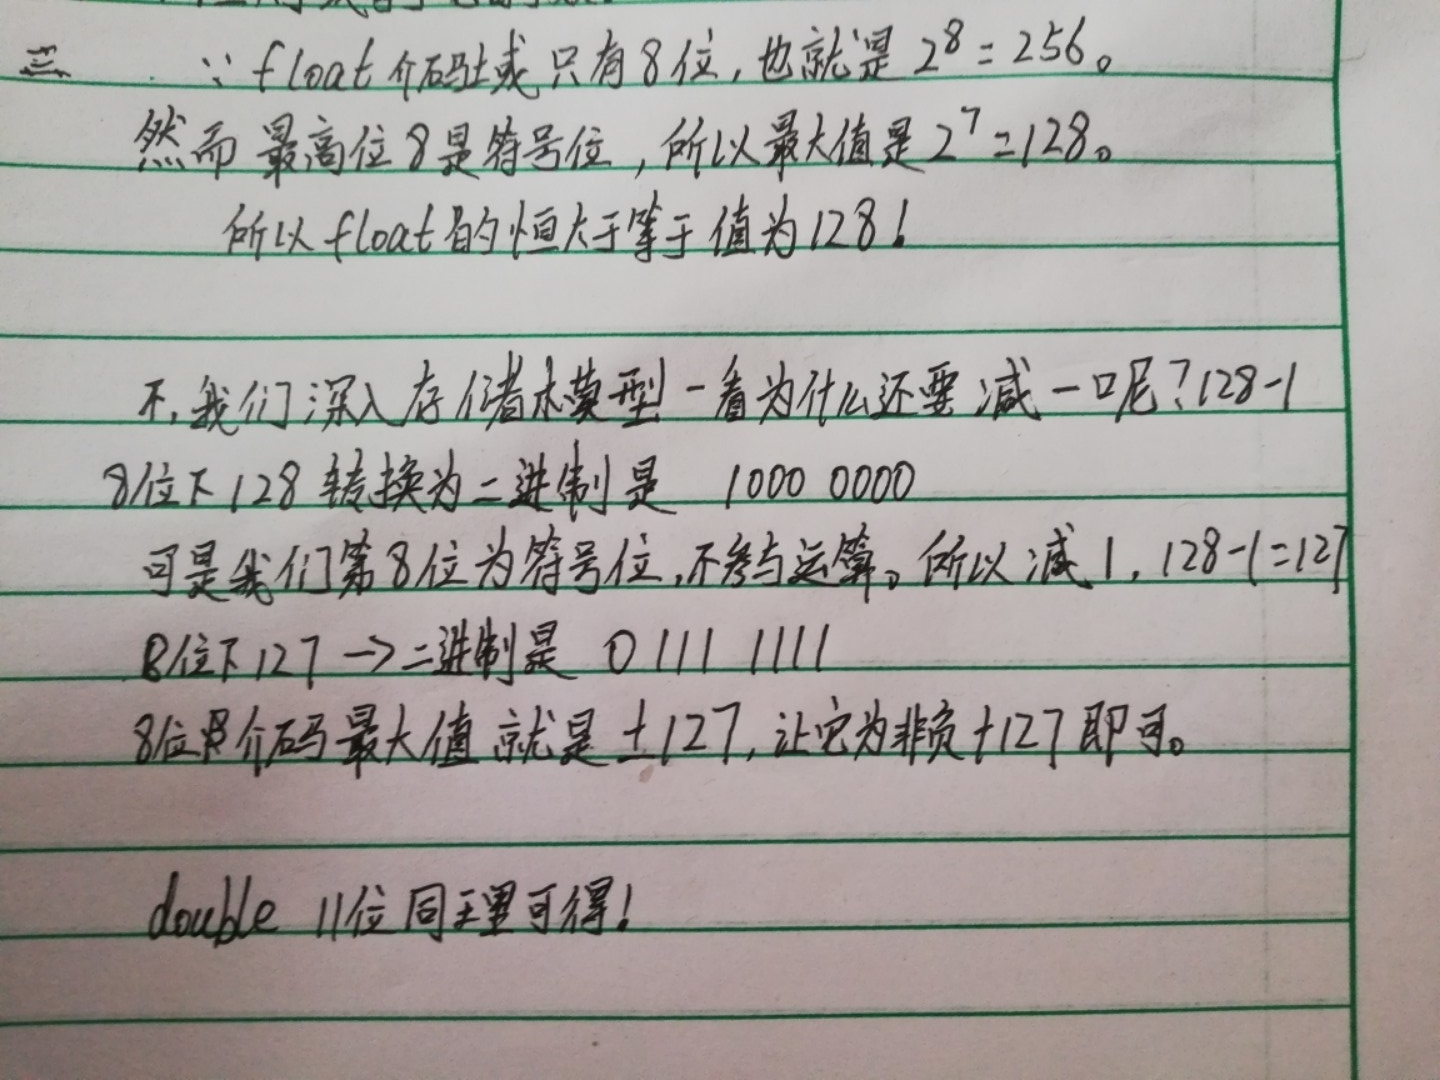 三 ∵ float介码域只有8位,也就是2⁸=256。
然而最高位8是符号位,所以最大值是2⁷=128。
所以float的恒大于等于值为128!
不,我们深入存储模型一看为什么还要减一呢?128-1
8位下128转换为二进制是 1000 0000
可是我们第8位为符号位,不参与运算。所以减1,128-1=127
8位下127→二进制是 0111 1111
8位介码最大值就是±127,让它为非负+127即可。
double 11位同理可得!